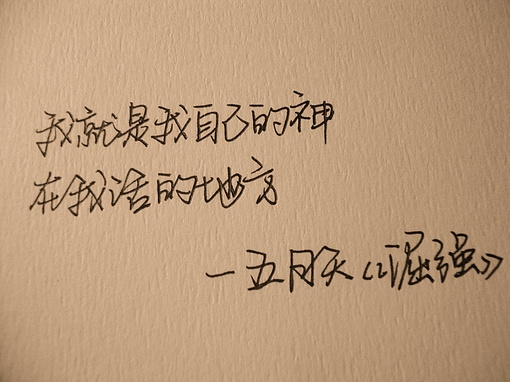 我就是我自己的神
在我活的地方
一五月天《倔强》